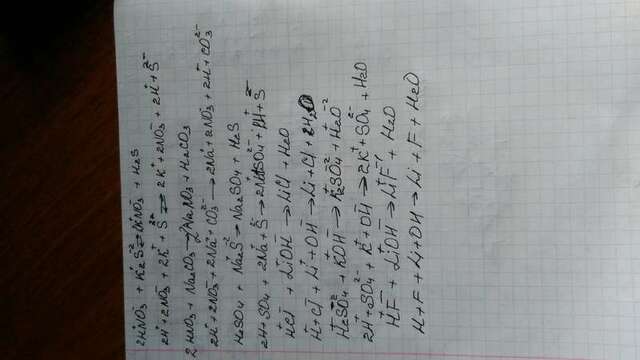 2HNO3 + K2S ⇄ 2KNO3 + H2S
2H + 2NO3 + 2K + S ⇄ 2K + 2NO3 + 2H + S
2HNO3 + Na2CO3 → 2NaNO3 + H2CO3
2H + 2NO3 + 2Na + CO3 → 2Na + 2NO3 + 2H + CO3
H2SO4 + Na2S → Na2SO4 + H2S
2H + SO4 + 2Na + S → 2Na + SO4 + 2H + S
HCl + LiOH → LiCl + H2O
H + Cl + Li + OH → Li + Cl + H2O
H2SO4 + KOH → K2SO4 + H2O
2H + SO4 + K + OH → 2K + SO4 + H2O
HF + LiOH → LiF + H2O
H + F + Li + OH → Li + F + H2O